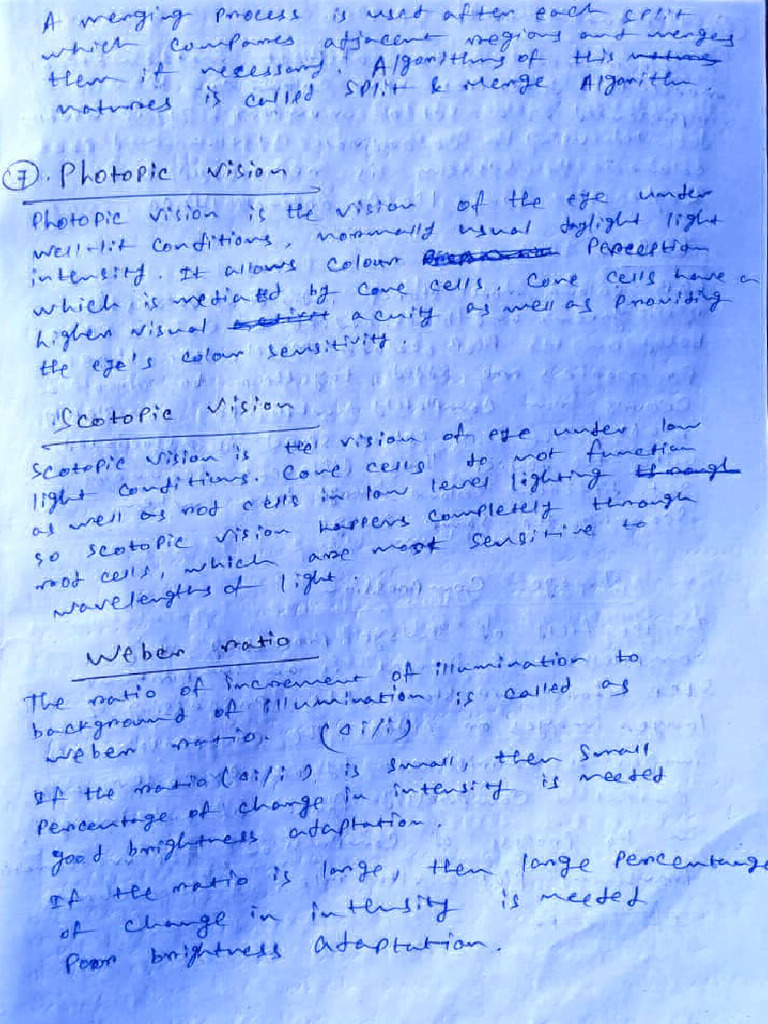 A merging process is used after each split
which compares adjacent regions and merges
them if necessary. Algorithms of this
naturses is called split & Merge Algorithm.
7. Photopic vision
Photopic vision is the vision of the eye under
well-lit conditions, normally usual daylight light
intensity. It allows colour Perception
which is mediated by cone cells. Cone cells have a
higher visual acuity as well as providing
the eye's colour sensitivity.
Scotopic vision
Scotopic vision is the vision of eye under low
light conditions. Cone cells do not function
as well as rod cells in low level lighting
so scotopic vision happens completely through
rod cells, which are most sensitive to
wavelengths of light.
Weber ratio
The ratio of increment of illumination to
background of illumination is called as
weber ratio. (Δi/i)
If the ratio (Δi/i) is small, then small
percentage of change in intensity is needed
good brightness adaptation.
If the ratio is large, then large percentage
of change in intensity is needed
Poor brightness adaptation.